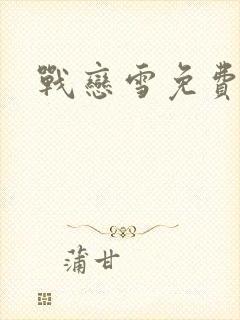 戰戀雪免費
蒲甘